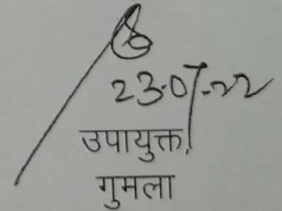 23.07.22
उपायुक्त,
गुमला